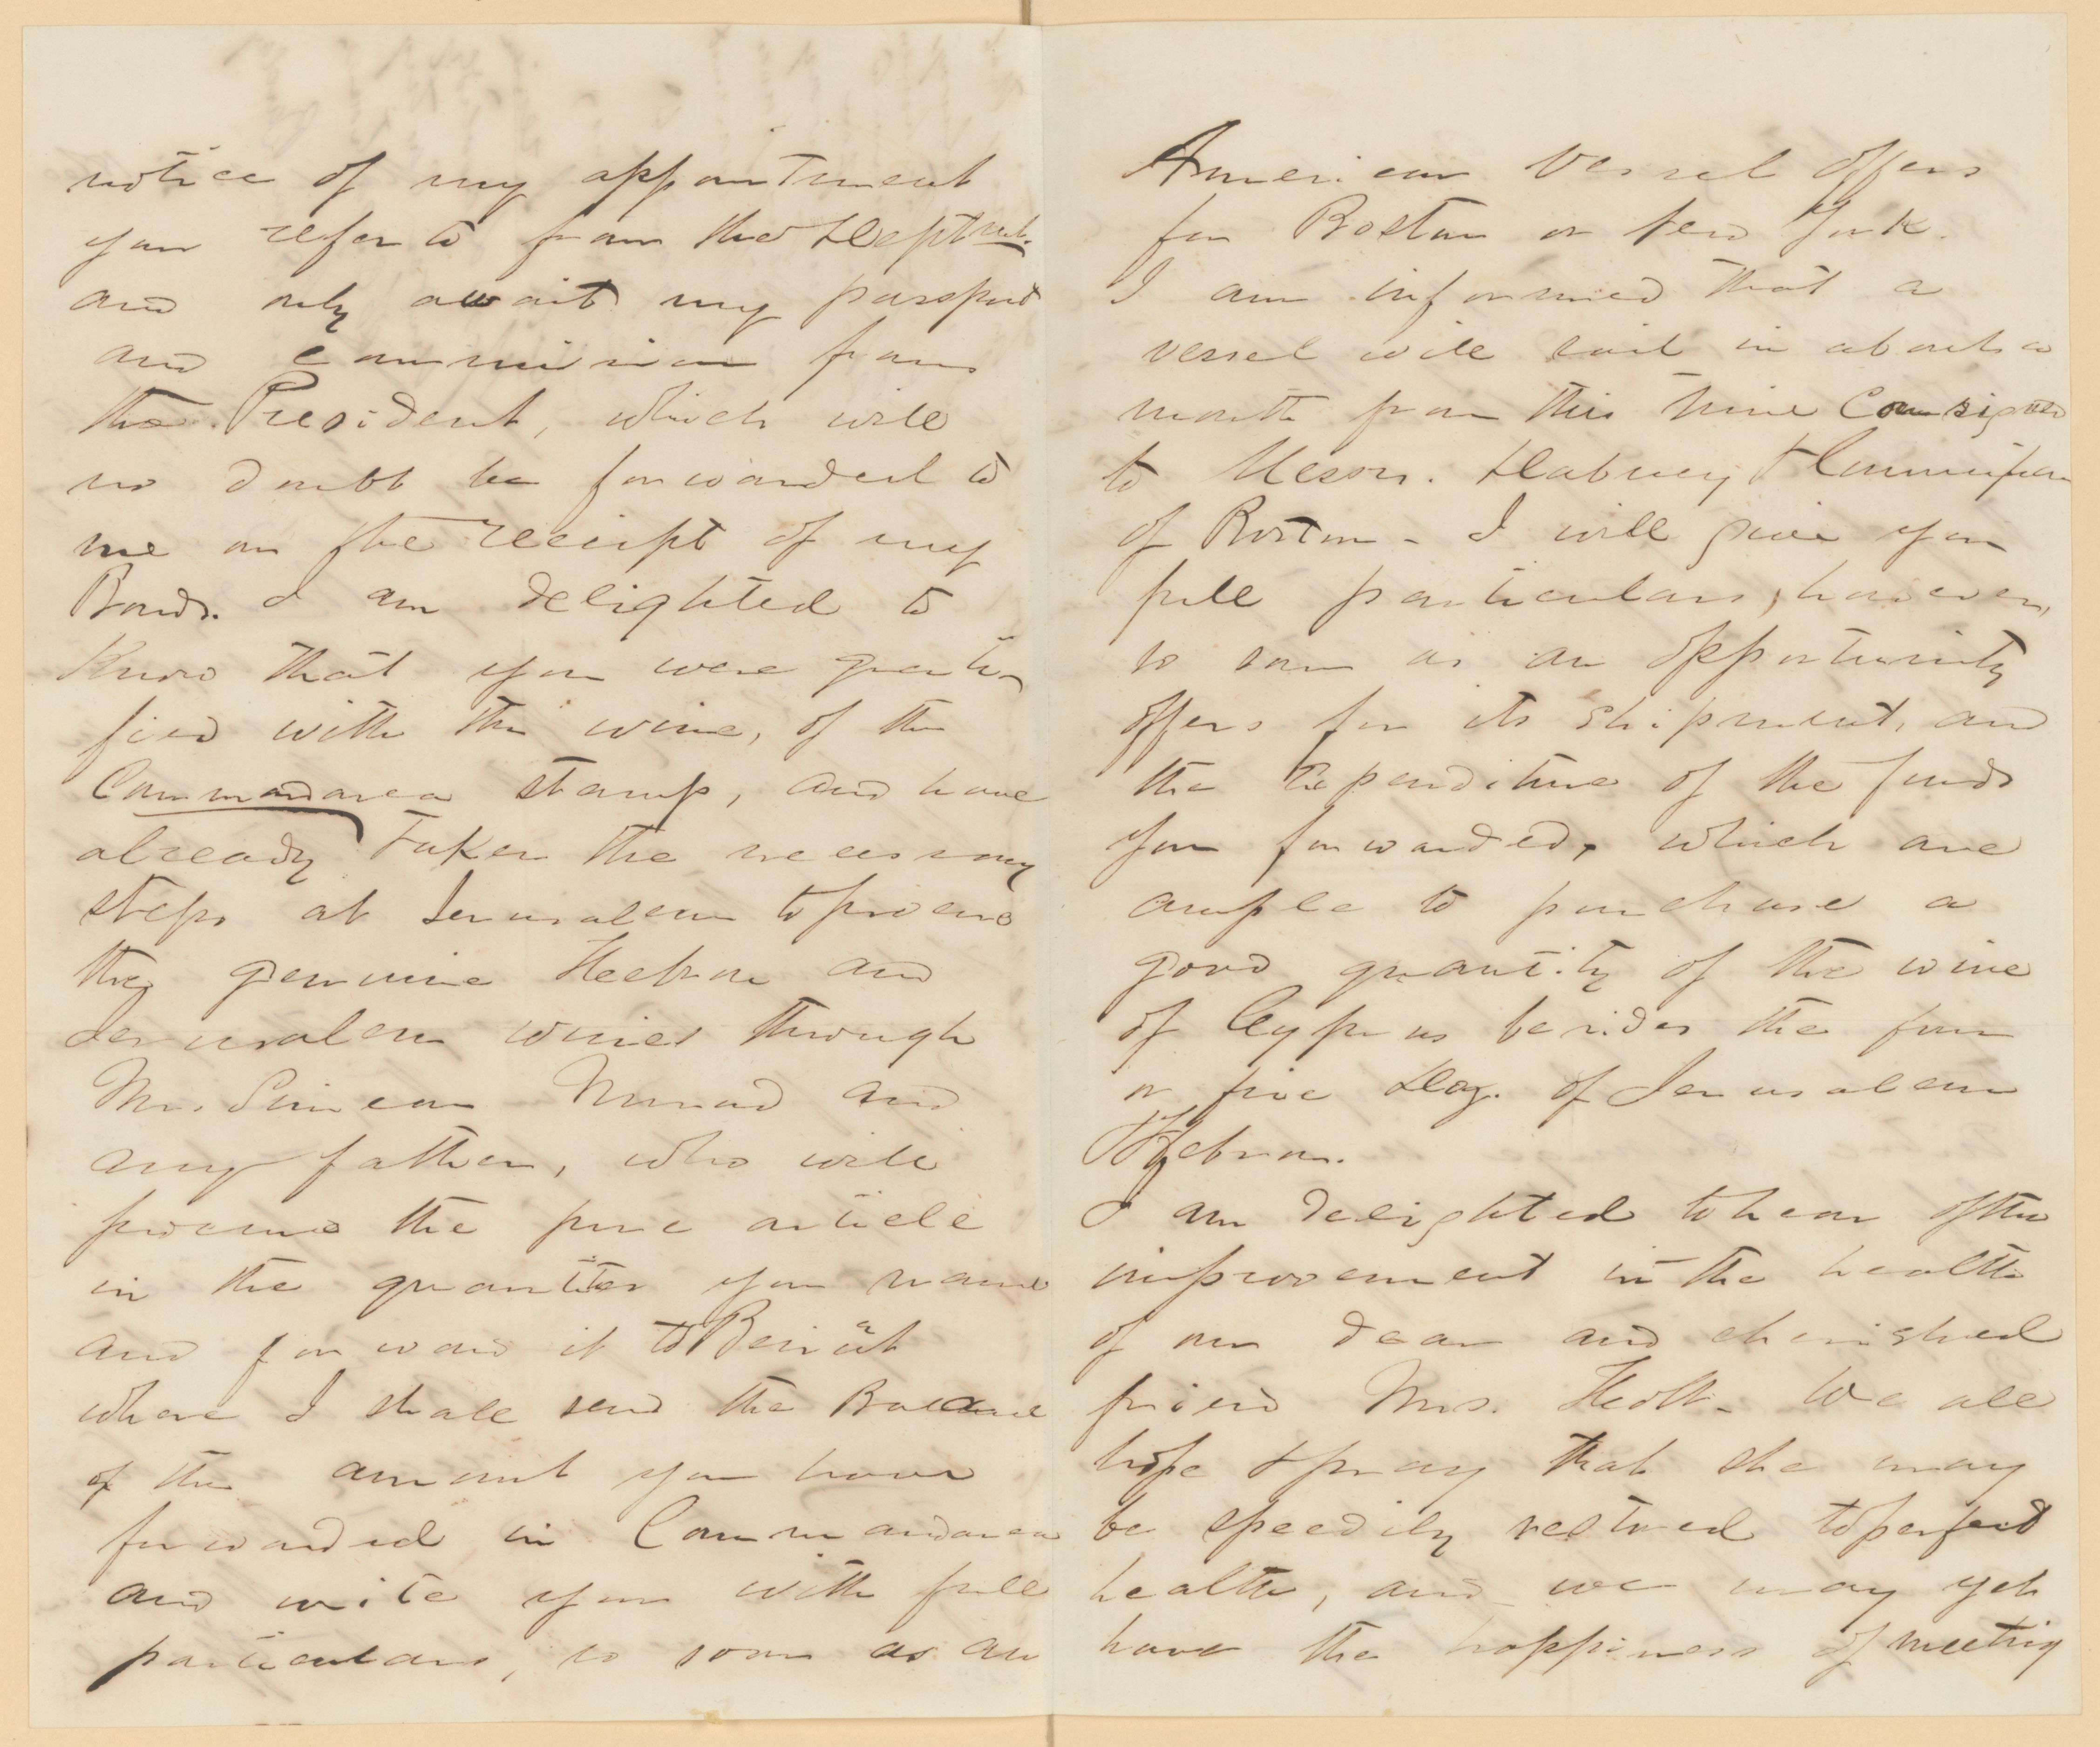 notice of my appointment
you refer to from the Deptmt.
and only await my passport
and commission from
the President, which will
no doubt be forwarded to
me on the receipt of my
Bonds. I am delighted to
Know that you were grati-
fied with the wine, of the
Commandarea stamp, and have
already Taken the necessary
steps at Jerusalem to procure
the genuine Hebron and
Jerusalem wines through
Mr. Simeon Murad and
my father, who will
procure the pure article
in the quantities you name
and forward it to Beirut
where I shall send the Balance
of the amount you have
forwarded in Commandarea
and write you with full
particulars, so soon as an
American Vessel offers
for Boston or New York.
I am informed that a
vessel will sail in about a
month from this time Consigned
to Messrs. Dabney &
of Boston - I will give you
full particulars, however,
so soon as an opportunity
offers for its shipment, and
the Expenditure of the funds
you forwarded, which are
ample to purchase a
good quantity of the wine
of Cyprus besides the four
or five Doz. of Jerusalem
Hebron.
I am delighted to hear of the
improvement in the health
of our dear and cherished
friend Mrs. Holt - We all
hope & pray that she may
be speedily restored to perfect
health, and we may yet
have the happiness of meeting